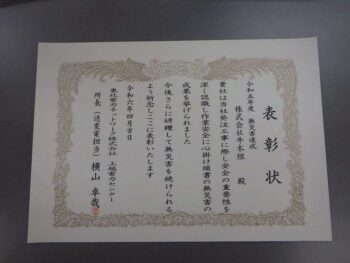 表彰状
令和五年度 無災害達成
株式会社牛木組 殿
貴社は当社発注工事に際し安全の重要性を
深く認識し作業安全に心掛け頭書の無災害の
成果を挙げられました
今後さらに研鑽して無災害を続けられる
よう祈念しここに表彰いたします
令和六年四月吉日
東北電力ネットワーク株式会社 上越電力センター
所長(送変電担当) 横山卓哉